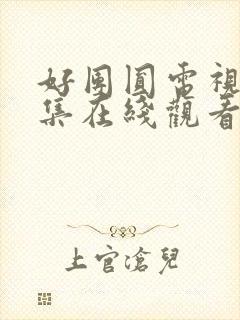 好團圓電視
集在綫觀看
上官滄兒